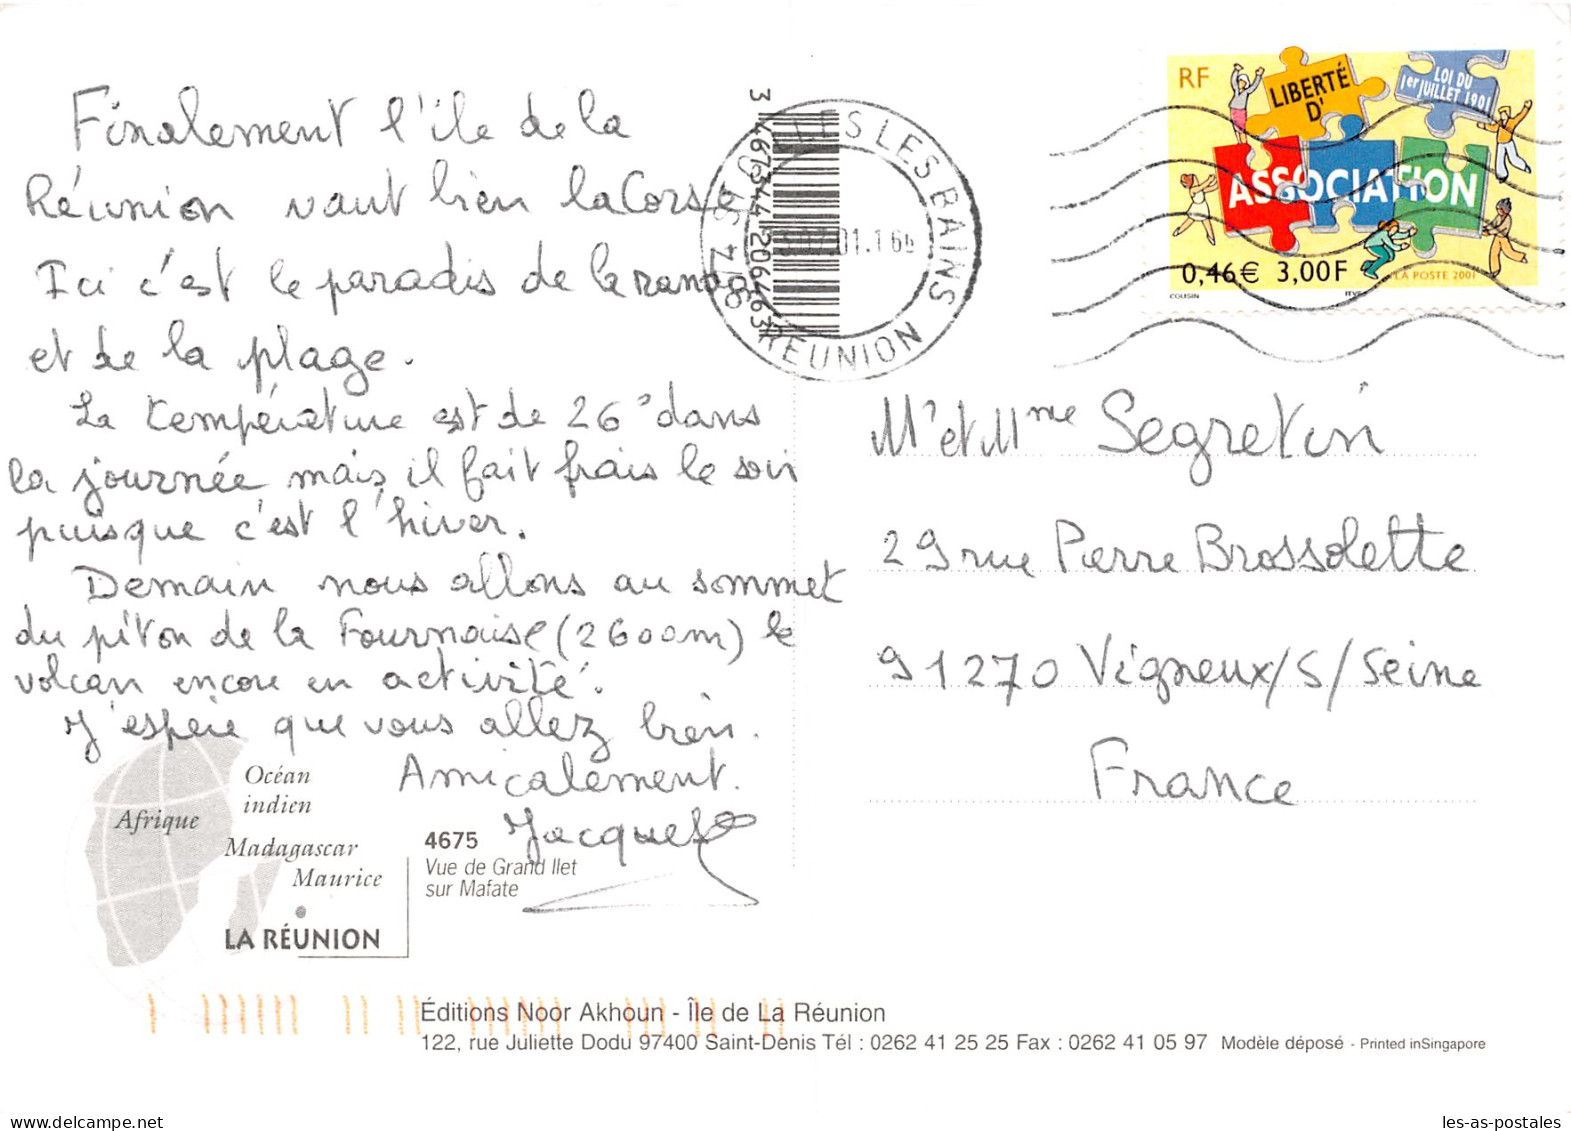 Finalement l'ile de la
Réunion vaut bien la Corse
Ici c'est le paradis de la rando
et de la plage.
La température est de 26° dans
la journée mais il fait frais le soir
puisque c'est l'hiver.
Demain nous allons au sommet
du piton de la Fournaise (2600m) le
volcan encore en activité.
J'espère que vous allez bien.
Amicalement.
Jacques
3 467344 206463
LES BAINS
RÉUNION
RF
LIBERTÉ
D'
ASSOCIATION
LOI DU
1er JUILLET 1901
0,46€ 3,00F
LA POSTE 2001
COUSIN
Mr et Mme Segretin
29 rue Pierre Brossolette
91270 Vigneux/S/Seine
France
Océan
indien
Afrique
Madagascar
Maurice
LA RÉUNION
4675
Vue de Grand Ilet
sur Mafate
Éditions Noor Akhoun - Île de La Réunion
122, rue Juliette Dodu 97400 Saint-Denis Tél : 0262 41 25 25 Fax : 0262 41 05 97 Modèle déposé - Printed inSingapore
delcampe.net
les-as-postales